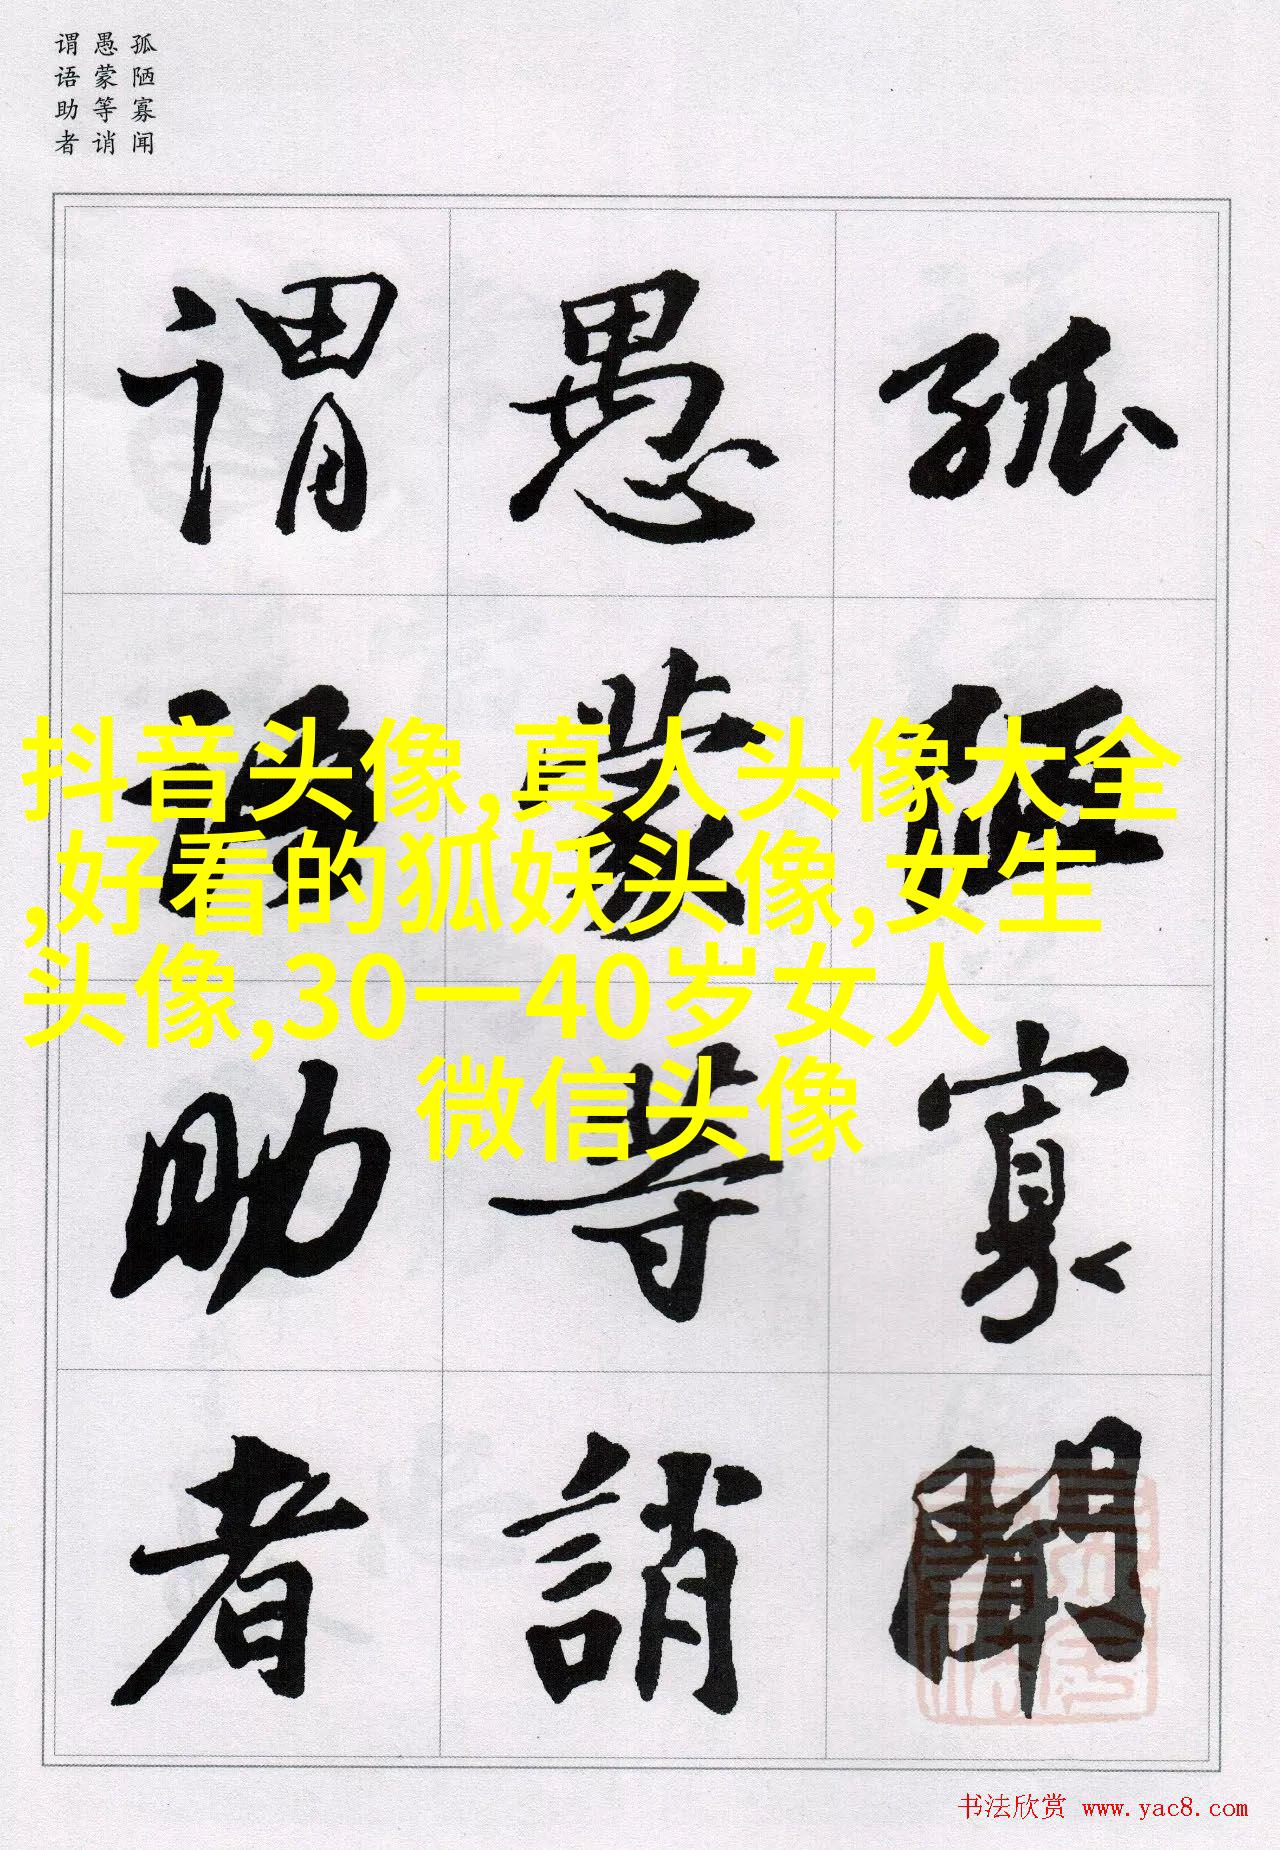 孤陋寡闻
愚蒙等诮
谓语助者
孤陋寡聞
愚蒙等誚
謂語助者
抖音头像,真人头像大全
,好看的狐妖头像,女生
头像,30一40岁女人
微信头像
书法欣赏 www.yac8.com